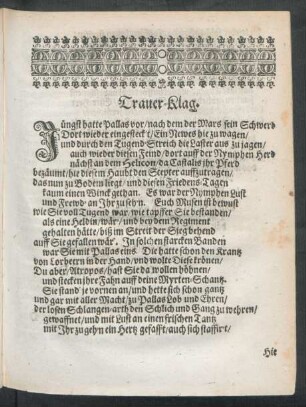 Trauer-Klag.
Jüngst hatte Pallas vor/nach dem der Mars sein Schwerd
Dort wieder eingesteckt/Ein Newes hie zu wagen/
und durch den Tugend-Streich die Laster aus zu jagen/
auch wieder diesen Feind/dort auff der Nymphen Herd
nächst an dem Helicon/da Castalis ihr Pferd
bezäumt/hie diesem Haubt den Scepter auffzutragen/
das nun zu Boden ligt/und diesen Friedens-Tagen
kaum einen Winck gethan. Es war der Nymphen Lust
und Frewd/an Ihr zu sehn. Euch Musen ist bewust
wie Sie voll Tugend war/wie tapffer Sie bestanden/
als eine Heldin/wär/und bey dem Regiment
gehalten hätte/biß im Streit der Sieg behend
auff Sie gefallen wär. In solchen starcken Banden
war Sie mit Pallas eins. Die hatte schon den Krantz
von Lorbeern in der Hand/und wolte Diese krönen/
Du aber/Atropos/hast Sie da wollen höhnen/
und stecken ihre Fahn auff deine Myrten-Schantz.
Sie stand je vornen an/und hette sich schon gantz
und gar mit aller Macht/zu Pallas Lob und Ehren/
der losen Schlangen-arth den Schlich und Gang zu wehren/
gewaffnet/und mit Lust an einen frischen Tantz
mit Ihr zu gehn ein Hertz gefasst/auch sich staffirt/
Hie